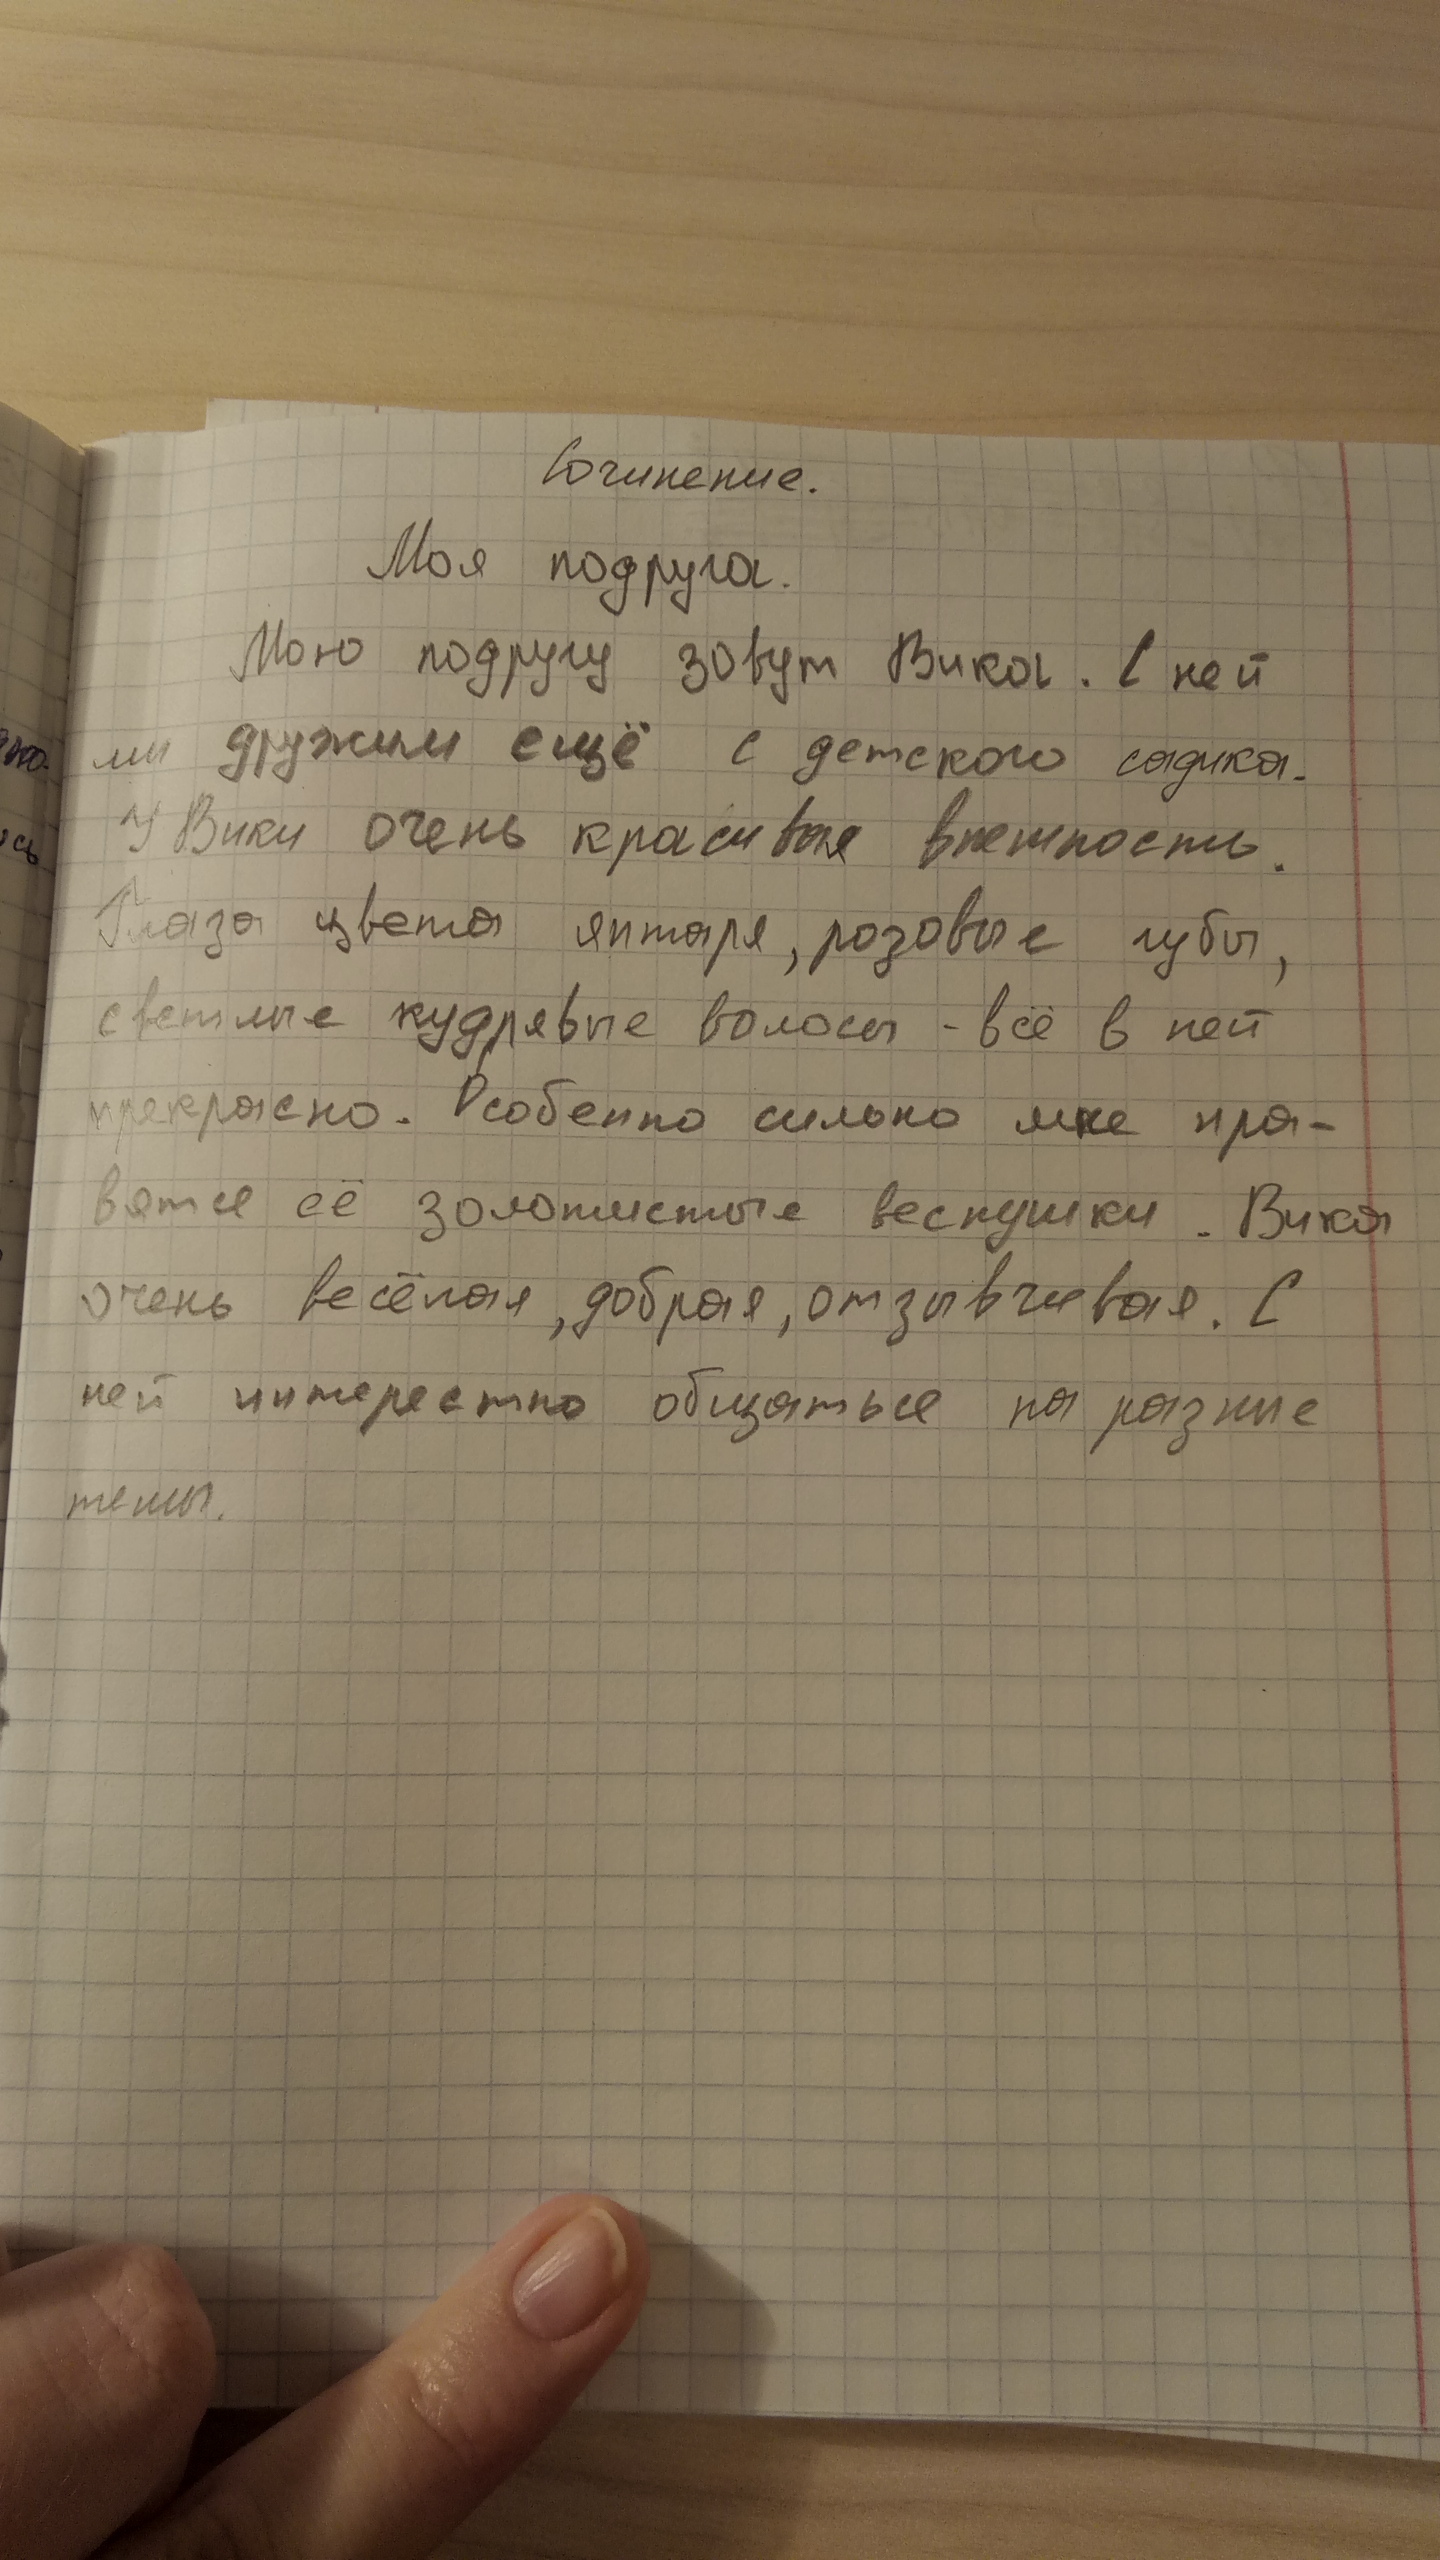 Сочинение.
Моя подруга.
Мою подругу зовут Вика. С ней
ми дружим ещё с детского садика.
У Вики очень красивая внешность.
Глаза цвета янтаря, розовые губы,
светлые кудрявые волосы - всё в ней
прекрасно. Особенно сильно мне нра-
вятся её золотистые веснушки. Вика
очень весёлая, добрая, отзывчивая. С
ней интересно общаться на разные
темы.